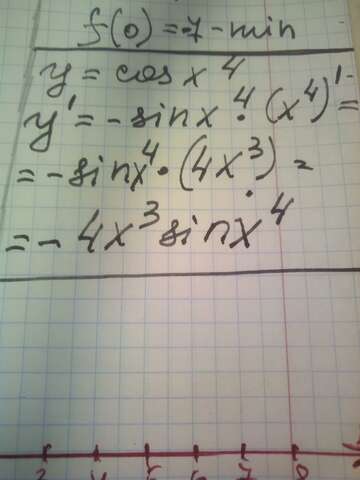 f(0) = -7 - min
y = cos x⁴
y' = - sinx⁴ · (x⁴)' =
= - sinx⁴ · (4x³) =
= - 4x³ sinx⁴
5 6 7 8